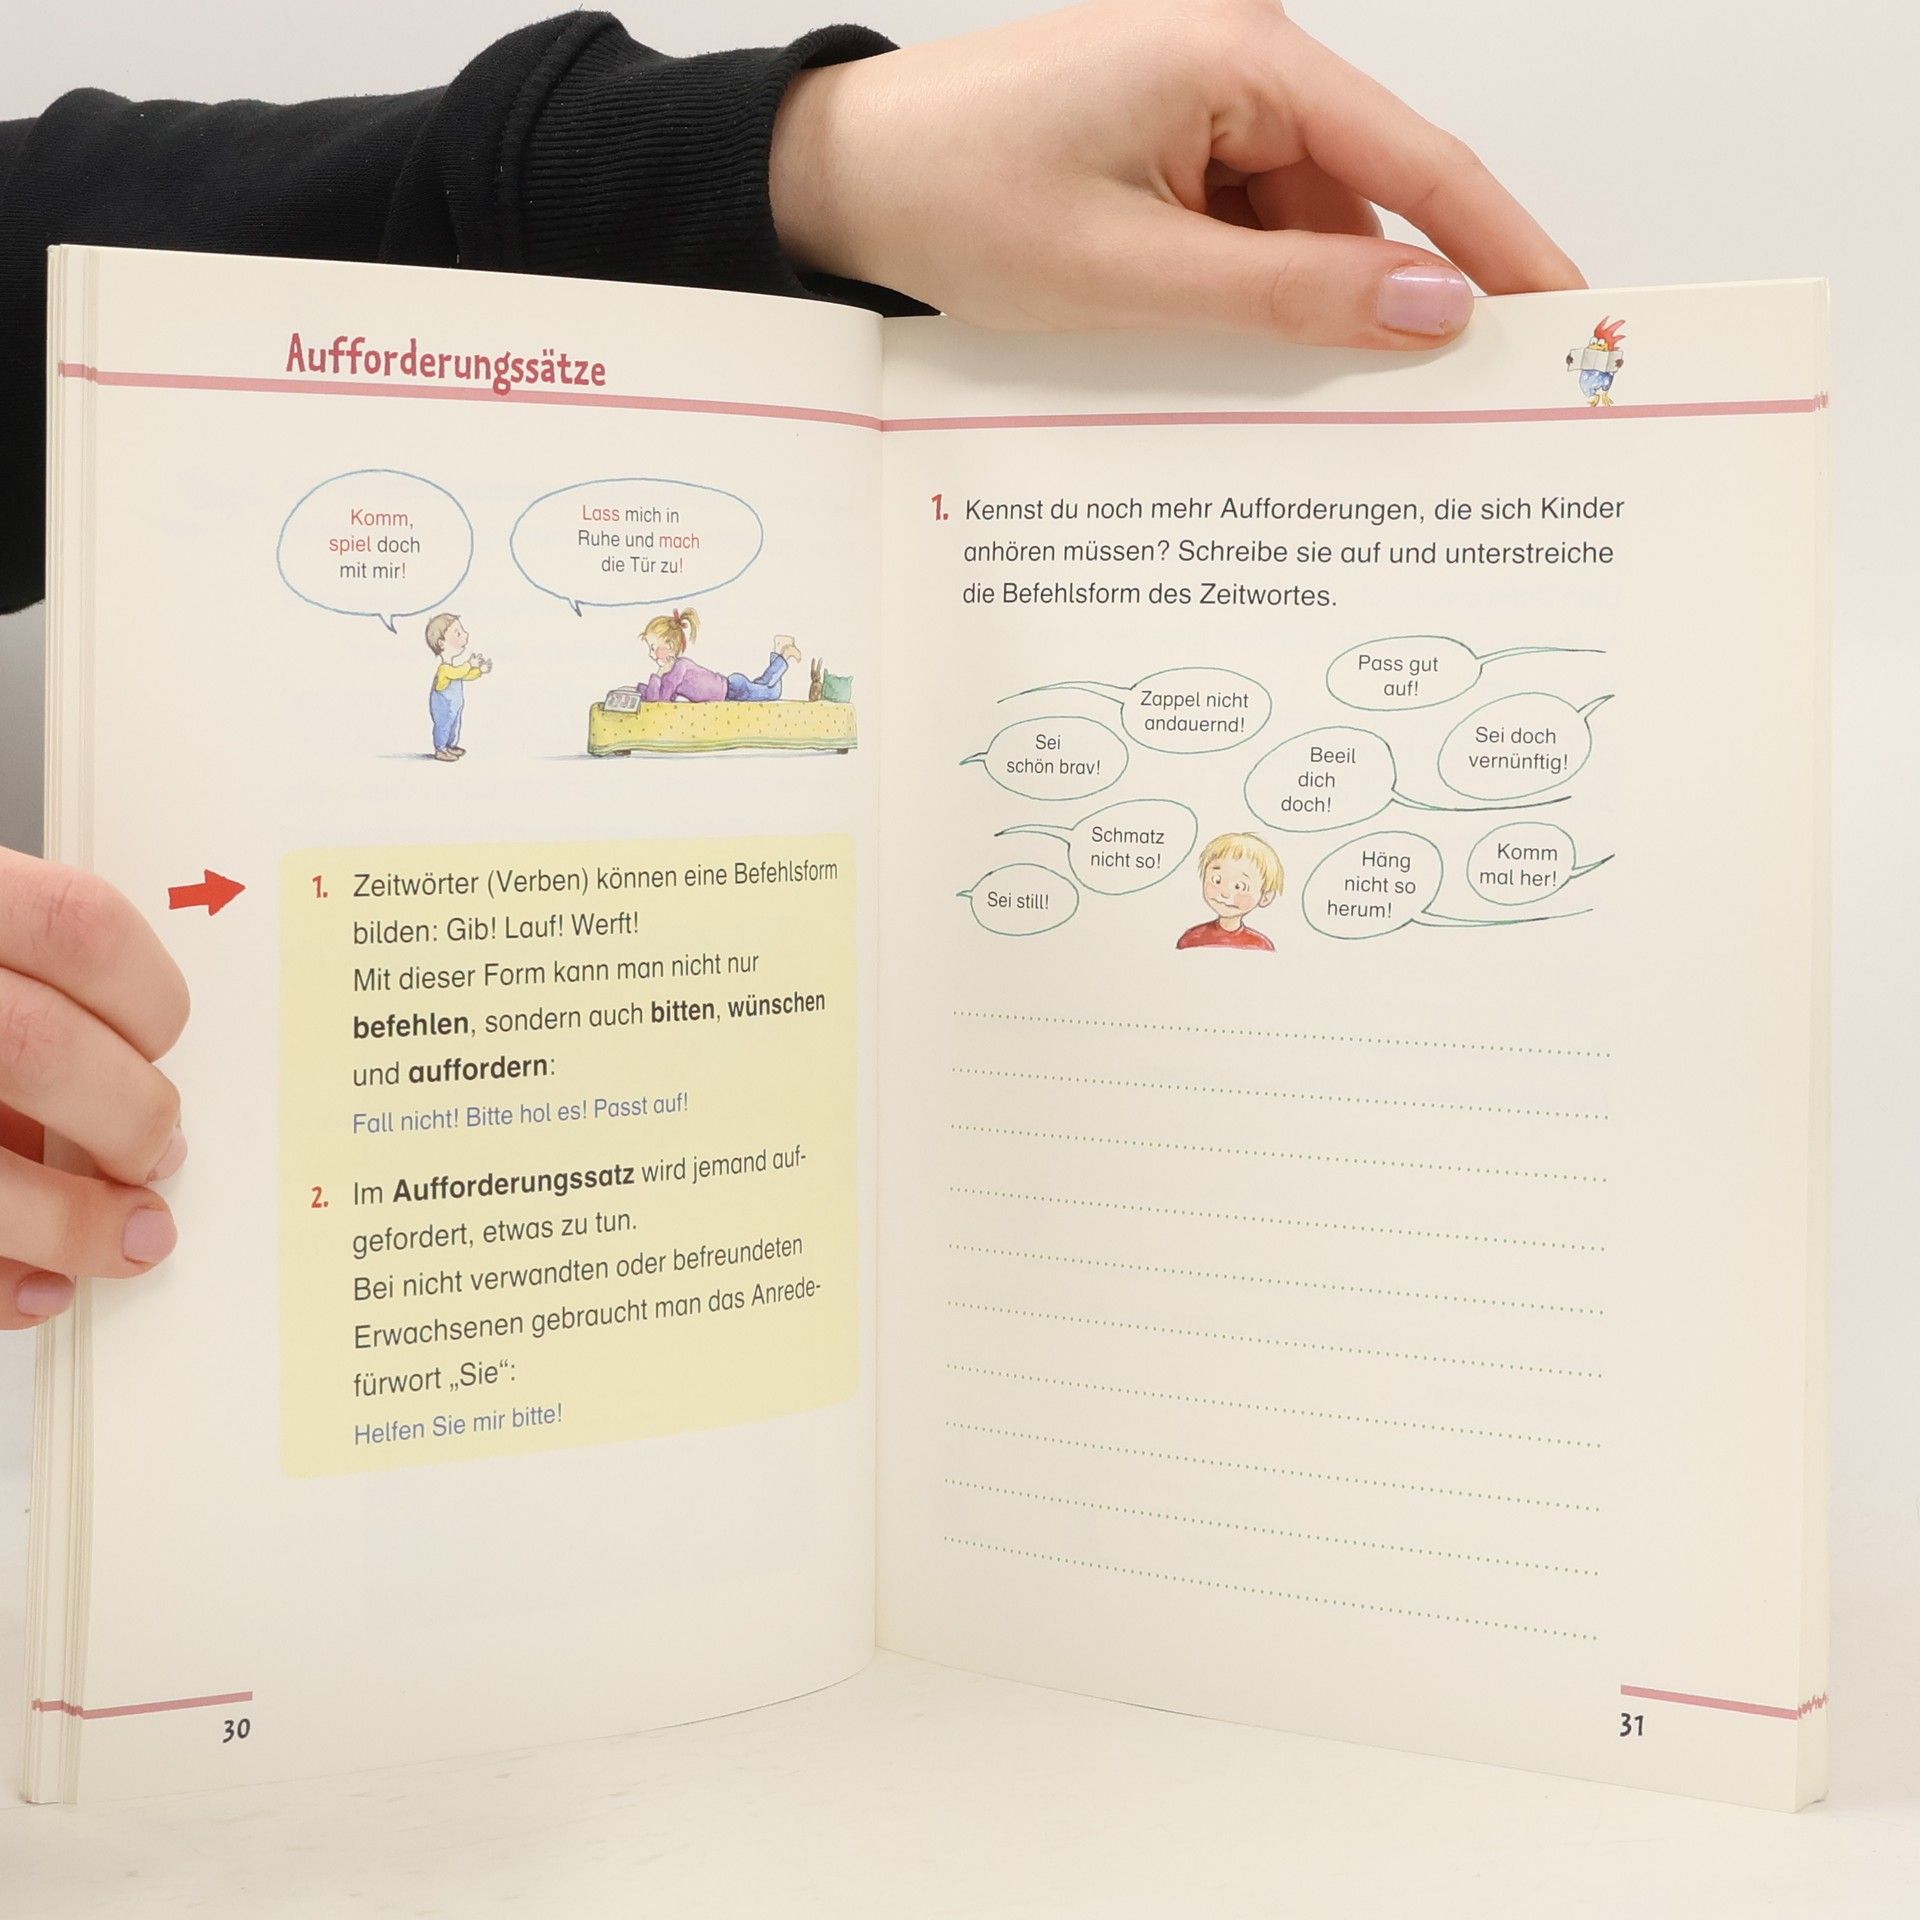 Aufforderungssätze
Komm,
spiel doch
mit mir!
Lass mich in
Ruhe und mach
die Tür zu!
1. Zeitwörter (Verben) können eine Befehlsform
bilden: Gib! Lauf! Werft!
Mit dieser Form kann man nicht nur
befehlen, sondern auch bitten, wünschen
und auffordern:
Fall nicht! Bitte hol es! Passt auf!
2. Im Aufforderungssatz wird jemand auf-
gefordert, etwas zu tun.
Bei nicht verwandten oder befreundeten
Erwachsenen gebraucht man das Anrede-
fürwort „Sie“:
Helfen Sie mir bitte!
30
1. Kennst du noch mehr Aufforderungen, die sich Kinder
anhören müssen? Schreibe sie auf und unterstreiche
die Befehlsform des Zeitwortes.
Pass gut
auf!
Zappel nicht
andauernd!
Sei
schön brav!
Beeil
dich
doch!
Sei doch
vernünftig!
Schmatz
nicht so!
Häng
nicht so
herum!
Komm
mal her!
Sei still!
31